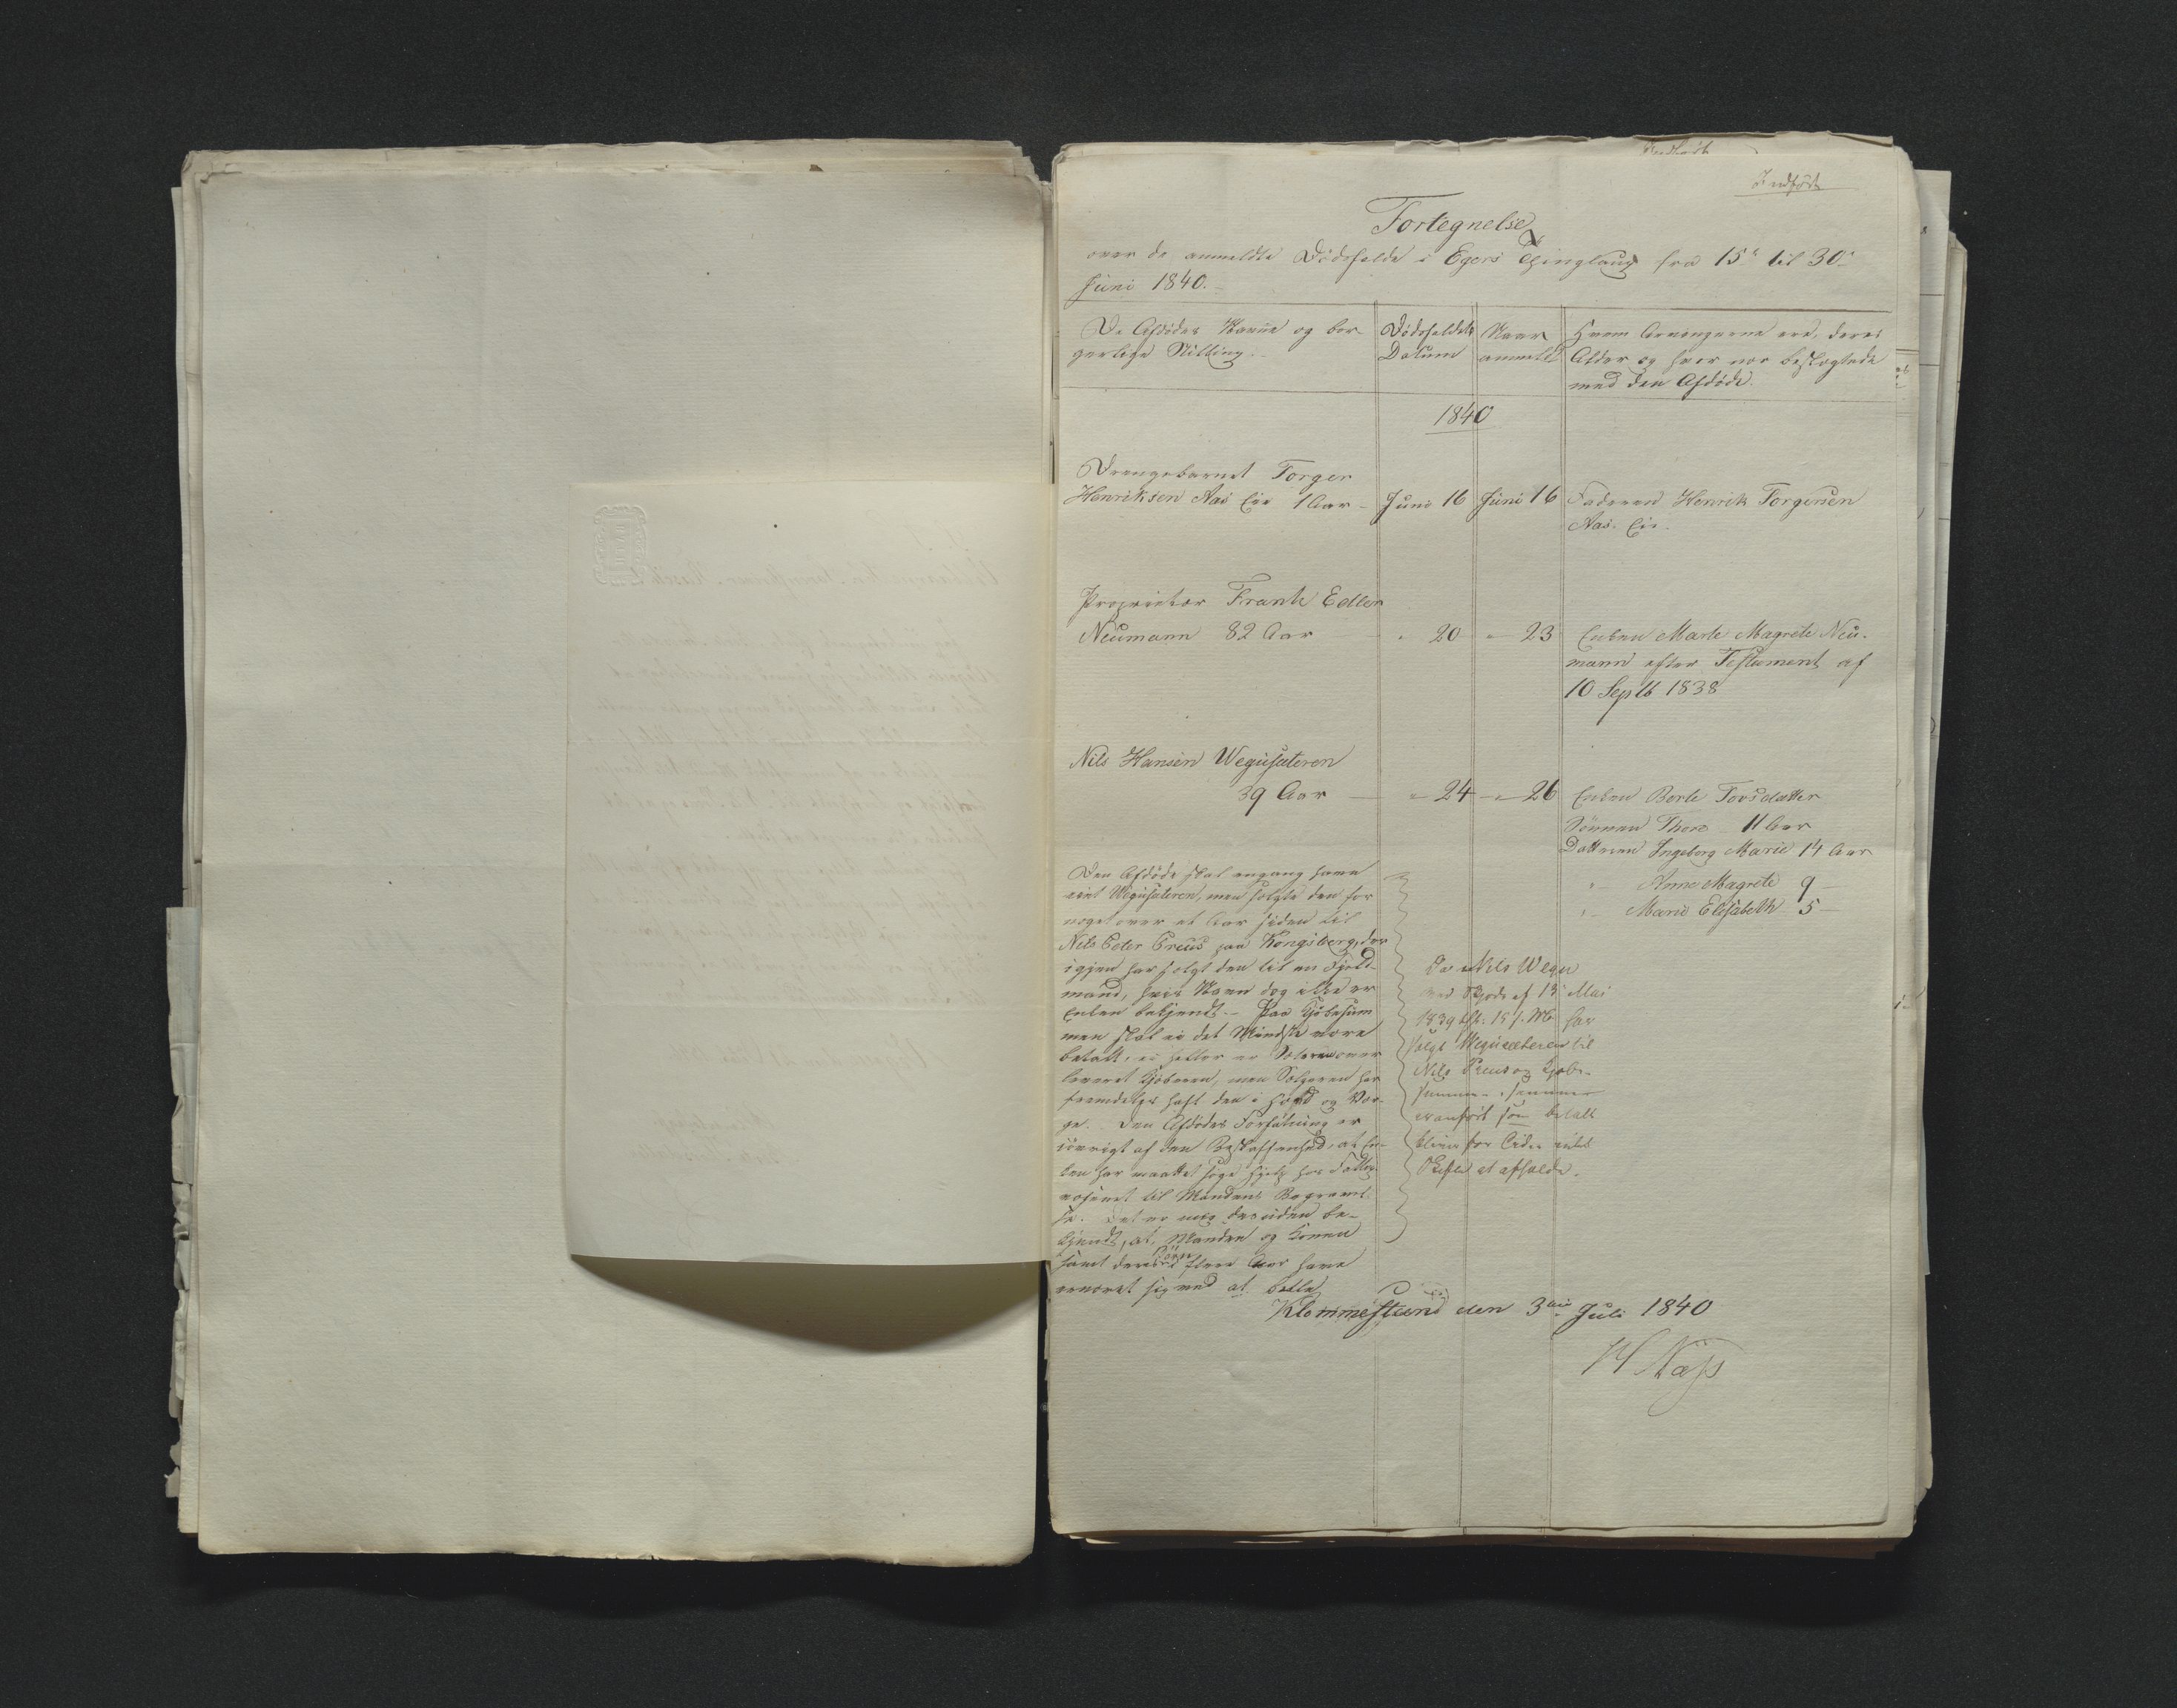 Indført
Fortegnelse
over de anmeldte Dødsfalde i Egers Thinglaug fra 15de til 30te
Juni 1840.
De Afdødes Navne og bor-
gerlige Stilling.
Dødsfaldets
Datum
Naar
anmeldt
Hvem Arvingerne ere, deres
Alder og hvor nær beslægtede
med den Afdøde.
1840
Drengebarnet Torger
Henriksen Aas Eie 1 Aar - Juni 16 Juni 16 Faderen Henrik Torgersen
Aas Eie.
Proprietær Frank Edler
Neumann 82 Aar - " 20 - 23 Enken Marte Magrete Neu-
mann efter Testament af
10 Septb 1838
Nils Hansen Wegusæteren
39 Aar - " 24 - " 26 Enken Berte Torsdatter
Sønnen Thore 11 Aar
Datteren Ingeborg Marie 14 Aar
" - Anne Magrete 9 -
" - Marie Elisabeth 5 -
Den Afdøde skal engang have
eiet Wegusæteren, men solgte den for
noget over et Aar siden til
Nils Peter Preus paa Kongsberg, der
igjen har solgt den til en Fjeld-
mand, hvis Navn dog ikke er
Enken bekjendt. - Paa Kjøbesum-
men skal ei det Mindste være
betalt, ei heller er Sæteren over-
leveret Kjøberen, men Sælgeren har
fremdeles havt den i Hævd og Vær-
ge. Den Afdødes Forfatning er
iøvrigt af den Beskaffenhed, at En-
ken har maattet søge Hjelp hos Fattig-
væsenet til Mandens Begravel-
se. Det er mig desuden be-
kjendt, at Manden og Konen
samt deres Børn i flere Aar have
ernæret sig med at betle
Da Nils Wegu
ved Skjøde af 13 Mai
1839 har
solgt Wegusæteren til
Nils Preus og Kjøbe-
summen
er anført som betalt
bliver her intet
Skifte at afholde.
Klommesteen den 3die Juli 1840
H Næss